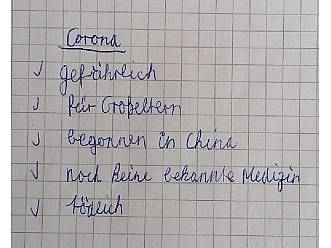 Corona
✓ gefährlich
✓ für Großeltern
✓ begonnen in China
✓ noch keine bekannte Medizin
✓ tödlich